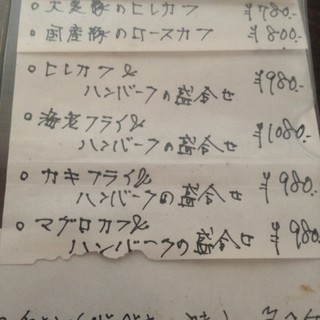 豚のヒレカツ ¥780.-
○ 国産豚のロースカツ ¥800.-
○ ヒレカツ&
ハンバーグの盛合せ ¥980.-
○ 海老フライ&
ハンバーグの盛合せ ¥1080.-
○ カキフライ&
ハンバーグの盛合せ ¥980.-
○ マグロカツ&
ハンバーグの盛合せ ¥980.